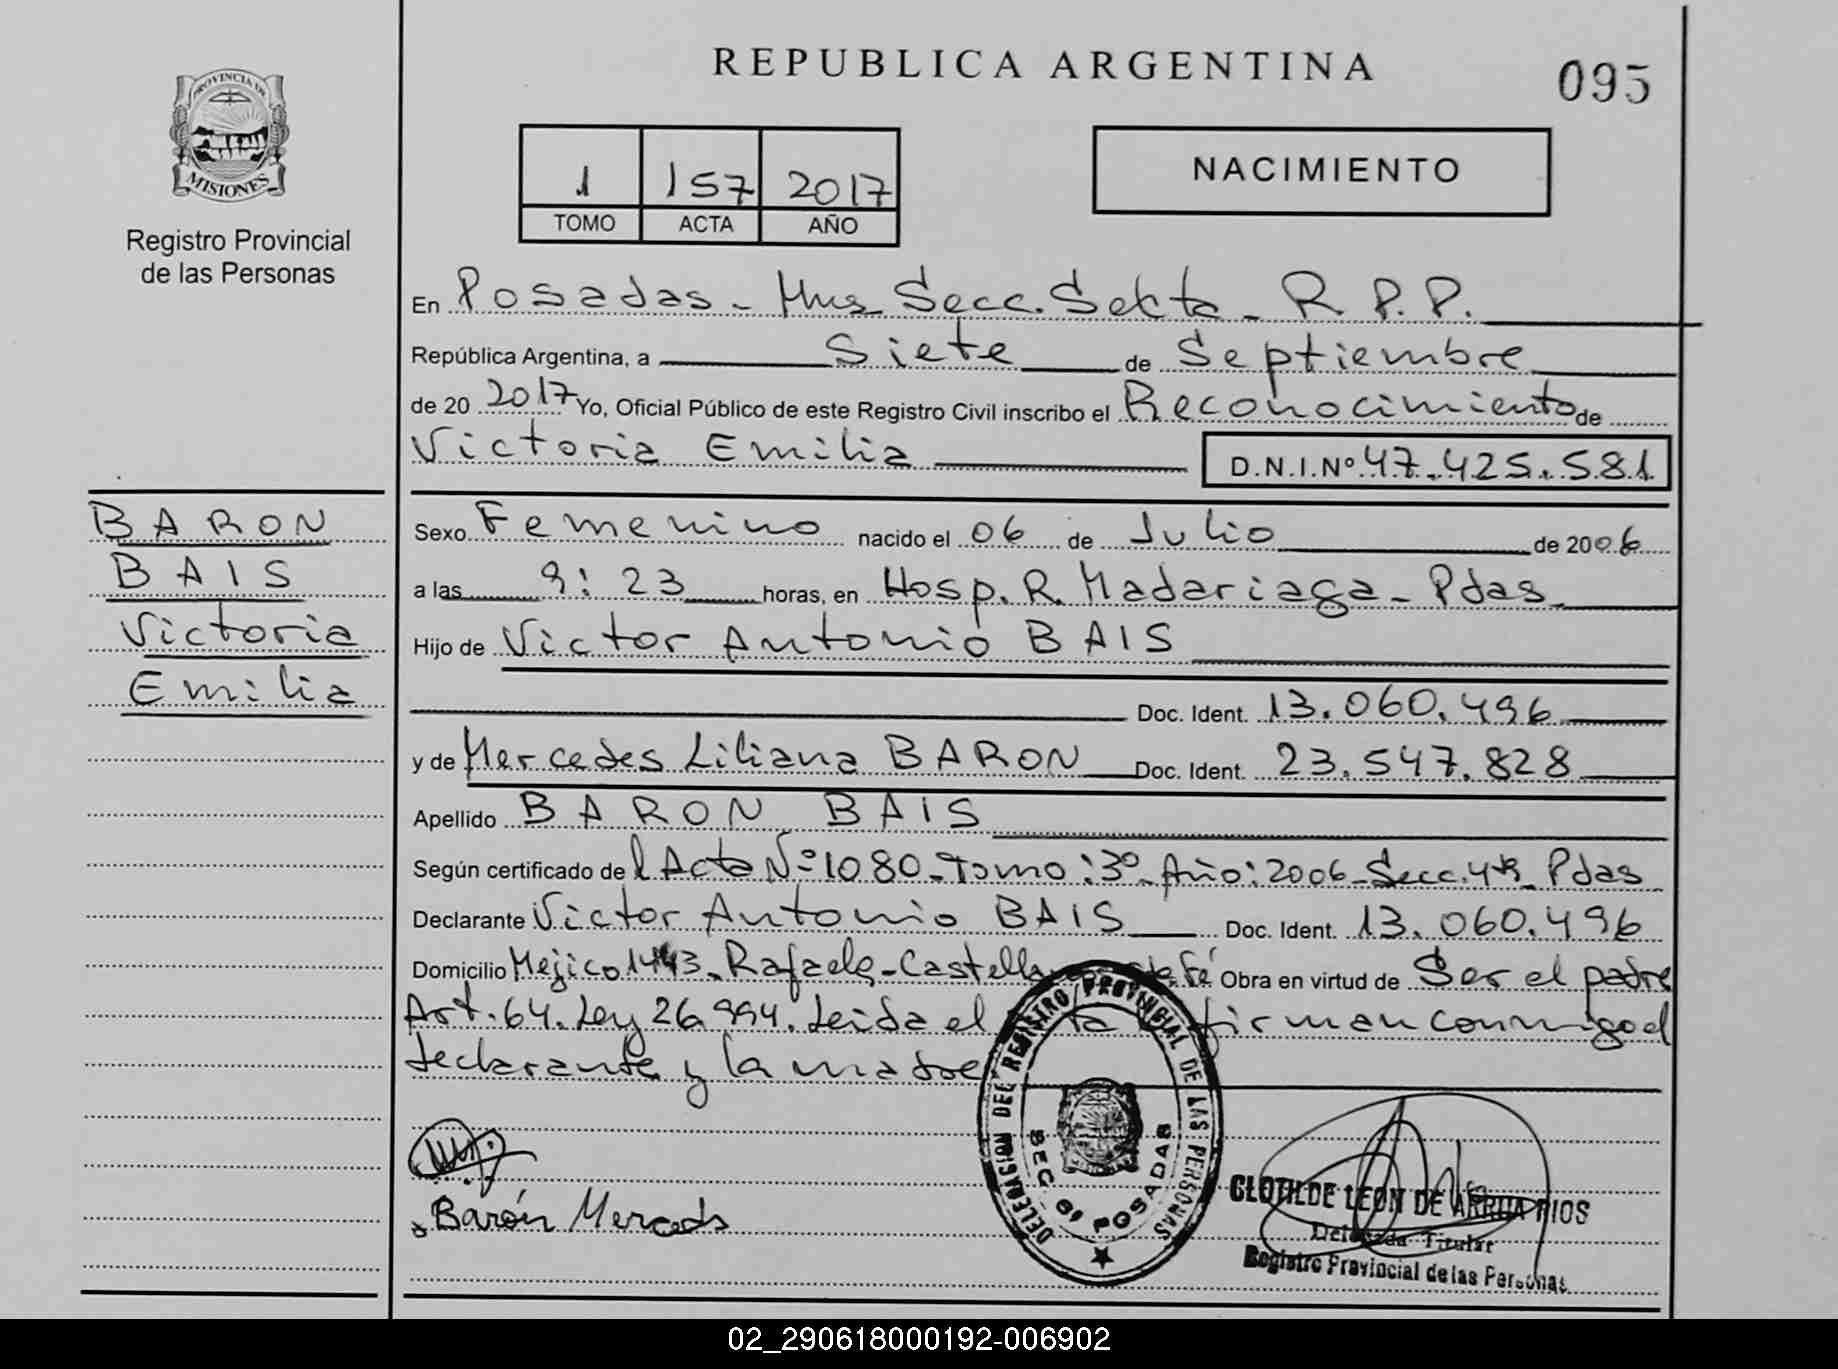 REPUBLICA ARGENTINA
095
PROVINCIA DE
MISIONES
Registro Provincial
de las Personas
1 157 2017
TOMO ACTA AÑO
NACIMIENTO
En Posadas - Mnes Secc. Sexta - R.P.P.
República Argentina, a Siete de Septiembre
de 20 2017 Yo, Oficial Público de este Registro Civil inscribo el Reconocimiento de
Victoria Emilia D.N.I.Nº 47.425.581
BARON
BAIS
Victoria
Emilia
Sexo Femenino nacido el 06 de Julio de 2006
a las 9:23 horas, en Hosp. R. Madariaga - Pdas
Hijo de Victor Antonio BAIS
Doc. Ident. 13.060.496
y de Mercedes Liliana BARON Doc. Ident. 23.547.828
Apellido BARON BAIS
Según certificado de l Acta Nº 1080 - Tomo: 3º - Año: 2006 - Secc. 4ta Pdas
Declarante Victor Antonio BAIS Doc. Ident. 13.060.496
Domicilio Mejico 1443 - Rafaela - Castell Fé Obra en virtud de Ser el padre
Art. 64. Ley 26.994. Leida el firman conmigo el
declarante y la madre
DELEGACION DEL REGISTRO PROVINCIAL DE LAS PERSONAS
SEC 6ª POSADAS
Barón Mercedes
CLOTILDE LEON DE ARRUA RIOS
Delegada Titular
Registro Provincial de las Personas
02_290618000192-006902